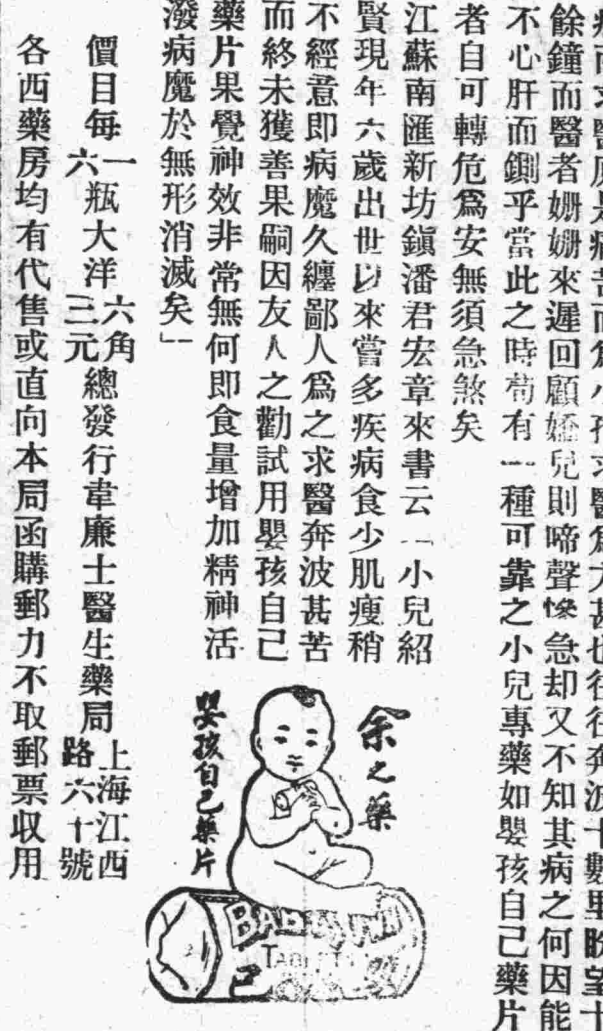 餘鐘而醫者姍姍來遲回顧嬌兒則啼聲慘急却又不知其病之何因能
不心肝而鍘乎當此之時苟有一種可靠之小兒專藥如嬰孩自己藥片
者自可轉危爲安無須急煞矣
江蘇南匯新坊鎭潘君宏章來書云「小兒紹
賢現年六歲出世以來嘗多疾病食少肌瘦稍
不經意即病魔久纏鄙人爲之求醫奔波甚苦
而終未獲善果嗣因友人之勸試用嬰孩自己
藥片果覺神效非常無何即食量增加精神活
潑病魔於無形消滅矣」
價目每一瓶大洋六角
六三元
總發行韋廉士醫生藥局上海江西
路六十號
各西藥房均有代售或直向本局函購郵力不取郵票収用
余之藥
嬰孩自己藥片
BABY'S OWN
TABLETS
己